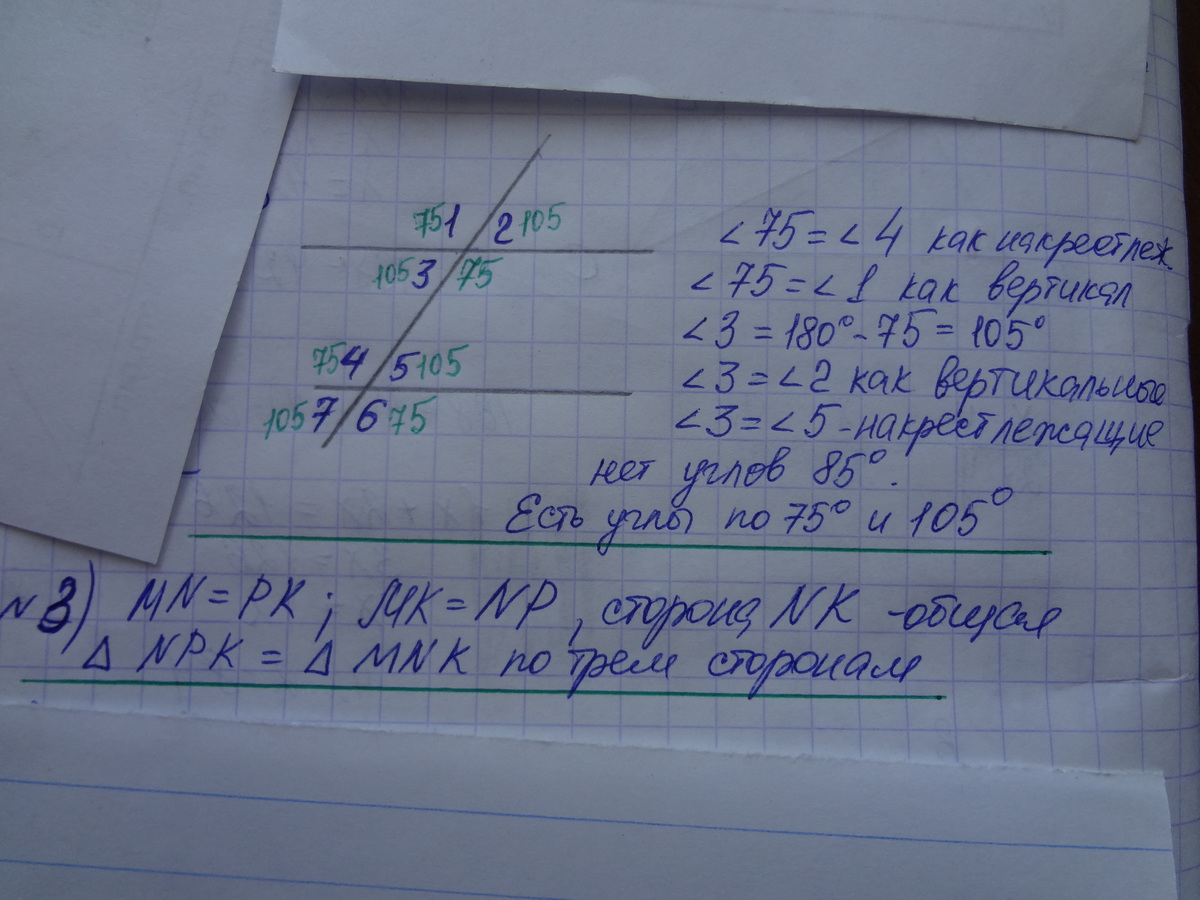 751 2105
1053 75
754 5105
1057 675
∠75=∠4 как накрестлеж.
∠75=∠1 как вертикал
∠3=180°-75=105°
∠3=∠2 как вертикальные
∠3=∠5-накрестлежащие
нет углов 85°.
Есть углы по 75° и 105°
N3) MN=PK; MK=NP, сторона NK -общая
Δ NPK = Δ MNK по трем сторонам